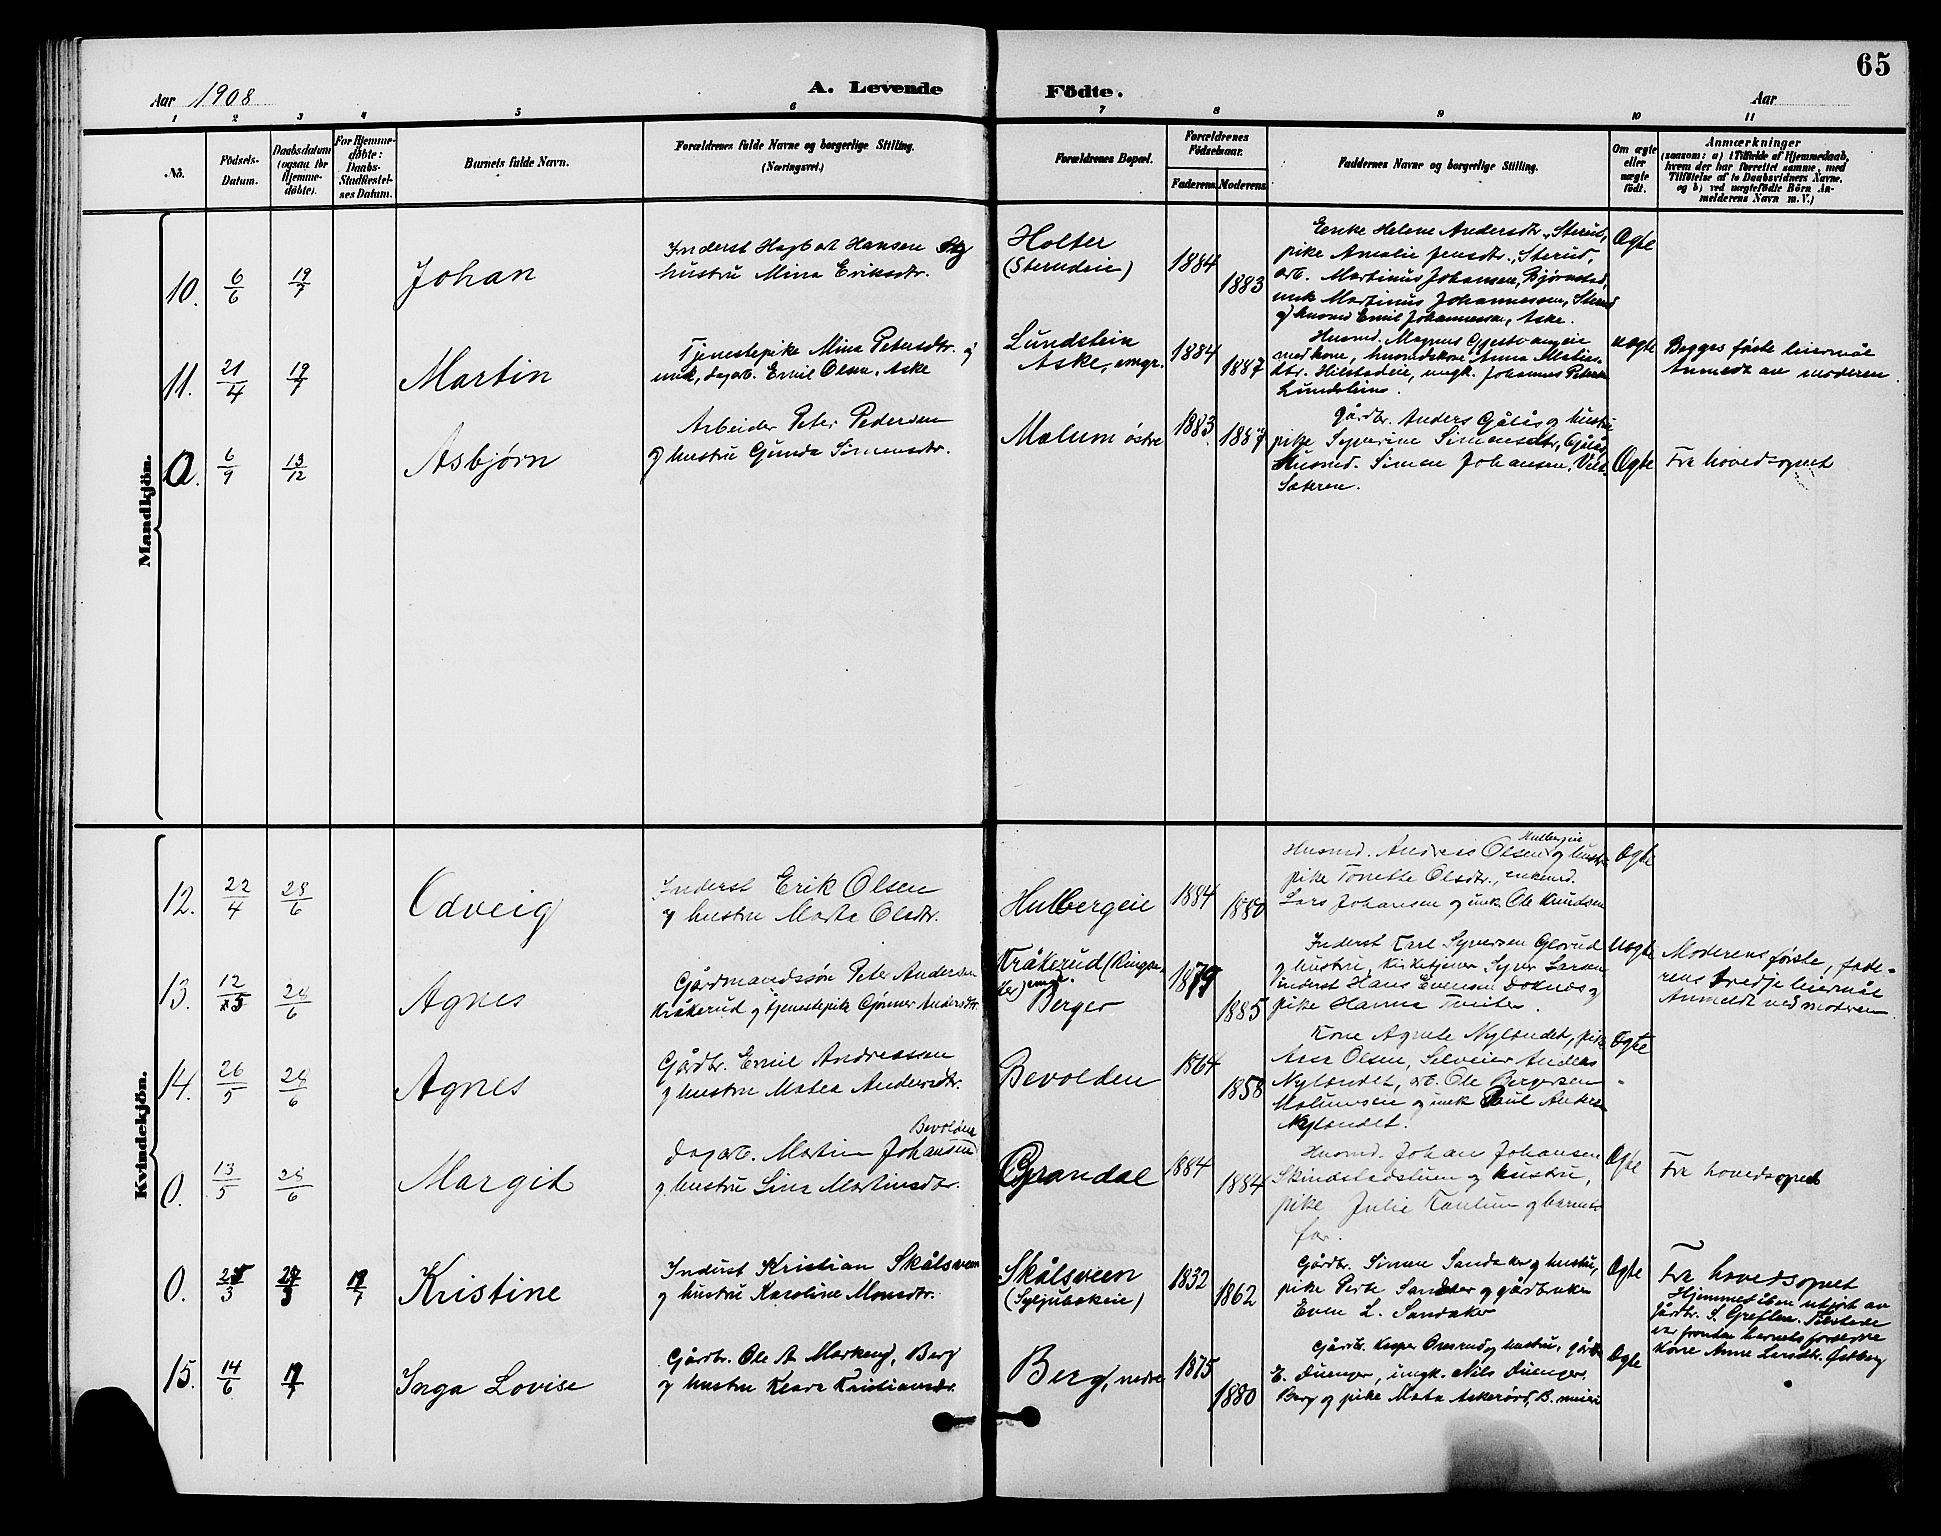 65
Aar 1908
A. Levende Födte.
Aar
1 2 3 4 5 6 7 8 9 10 11
No.
Födsels-Datum.
Daabsdatum (ogsaa for Hjemme-döbte).
For Hjemme-döbte: Daabs-Stadfæstel-ses Datum.
Barnets fulde Navn.
Forældrenes fulde Navne og borgerlige Stilling.
(Næringsvei.)
Forældrenes Bopæl.
Forældrenes Födselsaar.
Faderens. Moderens.
Faddernes Navne og borgerlige Stilling.
Om ægte eller uægte födt.
Anmærkninger
(saasom: a) i Tilfælde af Hjemmedaab,
hvem der har forrettet samme, med
Tilföielse af to Daabsvidners Navne.
og b) ved uægtefödte Börn An-
melderens Navn m. V.)
Mandkjön.
10. 6/6 19/7 Johan
Inderst Hagbart Hansen og
hustru Mina Eriksdtr.
Holter
1884 1883
Enke Helene Andersdtr., Sterud,
pike Amalie Jensdtr., Sterud,
arb. Martinus Johansen, Bjørnstad,
unk Martinus Johannessen, Sterud
og husmd Emil Johannessen, Aske.
Ægte
11. 21/4 19/7 Martin
Tjenestepike Mina Petersdtr. og
unk, dagarb. Emil Olsen, Aske
Lundstein
Aske, omgr.
1884 1887
Husmd. Magnus Gjestvangeie
med kone, husmdskone Anna
Hilstadeie, ungk. Johannes Petersen
Lundstein.
uægte
Begges første leiermål
Anmeldt av moderen
0. 6/9 13/12 Asbjørn
Arbeider Peter Pedersen
og hustru Gunda Simensdtr.
Mælum østre
1883 1887
Gårdbr. Anders Gjålås og hustru
pike Syverine Simensdtr, Gjålås,
Husmd. Simen Johansen,
Sæteren.
Ægte
Fra hovedsognet
Kvindekjön.
12. 22/4 28/6 Odveig
Inderst Erik Olsen
og hustru Marta Olsdtr.
Hulbergeie
1884 1880
Hulbergeie
Husmd. Andreas Olsen og hustru
pike Tonette Olsdtr., enkemd.
Lars Johansen og unk. Ole Knudsen
Ægte
13. 12/5 28/6 Agnes
Gårdmandssøn Peter Andersen
Kråkerud og tjenestepik Gjønner Andersdtr.
Kråkerud (Ringsa-
ker) omgr.
Berger
1879 1885
Inderst Karl Syversen Glorud
og hustru, kirketjener Syver Larsen
inderst Hans Evensen Doknes og
pike Hanna Tveiter.
Uægte
Moderens første, fade-
rens tredje leiermål
Anmeldt ved moderen
14. 26/5 28/6 Agnes
Gårdbr. Emil Andreassen
og hustru Matea Andersdtr.
Bevolden
1864 1858
Kone Agnete Nylandet, pike
Åsa Olsen, Selveier Anders
Nylandet, arb. Ole Bergersen
Mælumseie og unk Paul Andersen
Nylandet.
Ægte
0. 13/5 28/6 Margit
Bevolden
dagarb. Martin Johansen
og hustru Lina Martinsdtr.
Grandal
1884 1884
Husmd. Johan Johansen
Skindstadstuen og hustru,
pike Julie og barnets
far.
Ægte
Fra hovedsognet
0. Kristine
Inderst Kristian Skålsveen
og hustru Karoline Monsdtr.
Skålsveen
(Syljubakeie)
1832 1862
Gårdbr. Simen Sandaker og hustru,
pike Perte Sandaker og gårdbruker
Even L. Sandaker
Ægte
Fra hovedsognet
Hjemmedåben utført av
Gårdbr. S. Greftten. Tilstede
var foruten barnets forældre
Kone Anne Larsdtr. Østberg
15. 14/6 Inga Lovise
Gårdbr. Ole A Markeng, Berg
og hustru Klara Kristiansdtr.
Berg, nedre
1875 1880
Gårdbr. Kasper Onsrud og hustru,
E. Duenger, ungk. Nils Duenger,
Berg og pike Marta
Ægte